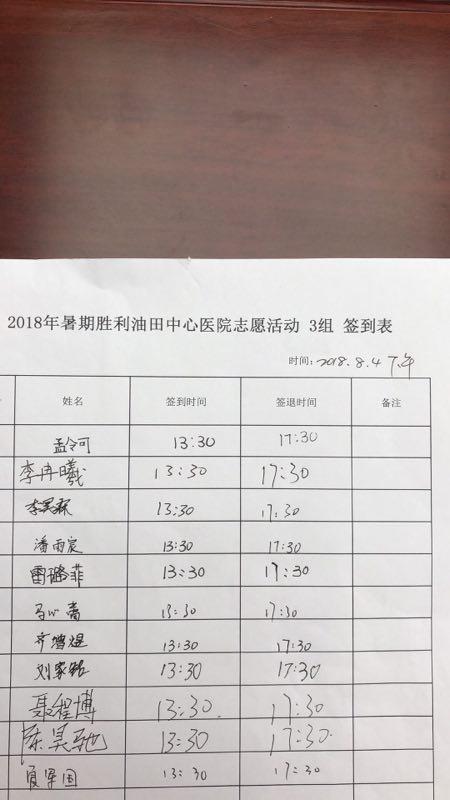 2018年暑期胜利油田中心医院志愿活动 3组 签到表
时间：2018.8.4 下午
姓名 签到时间 签退时间 备注
孟令可 13:30 17:30
李冉曦 13:30 17:30
13:30 17:30
潘雨宸 13:30 17:30
雷璐菲 13:30 17:30
马心 13:30 17:30
齐增煜 13:30 17:30
刘家铭 13:30 17:30
聂程博 13:30 17:30
陈昊驰 13:30 17:30
13:30 17:30